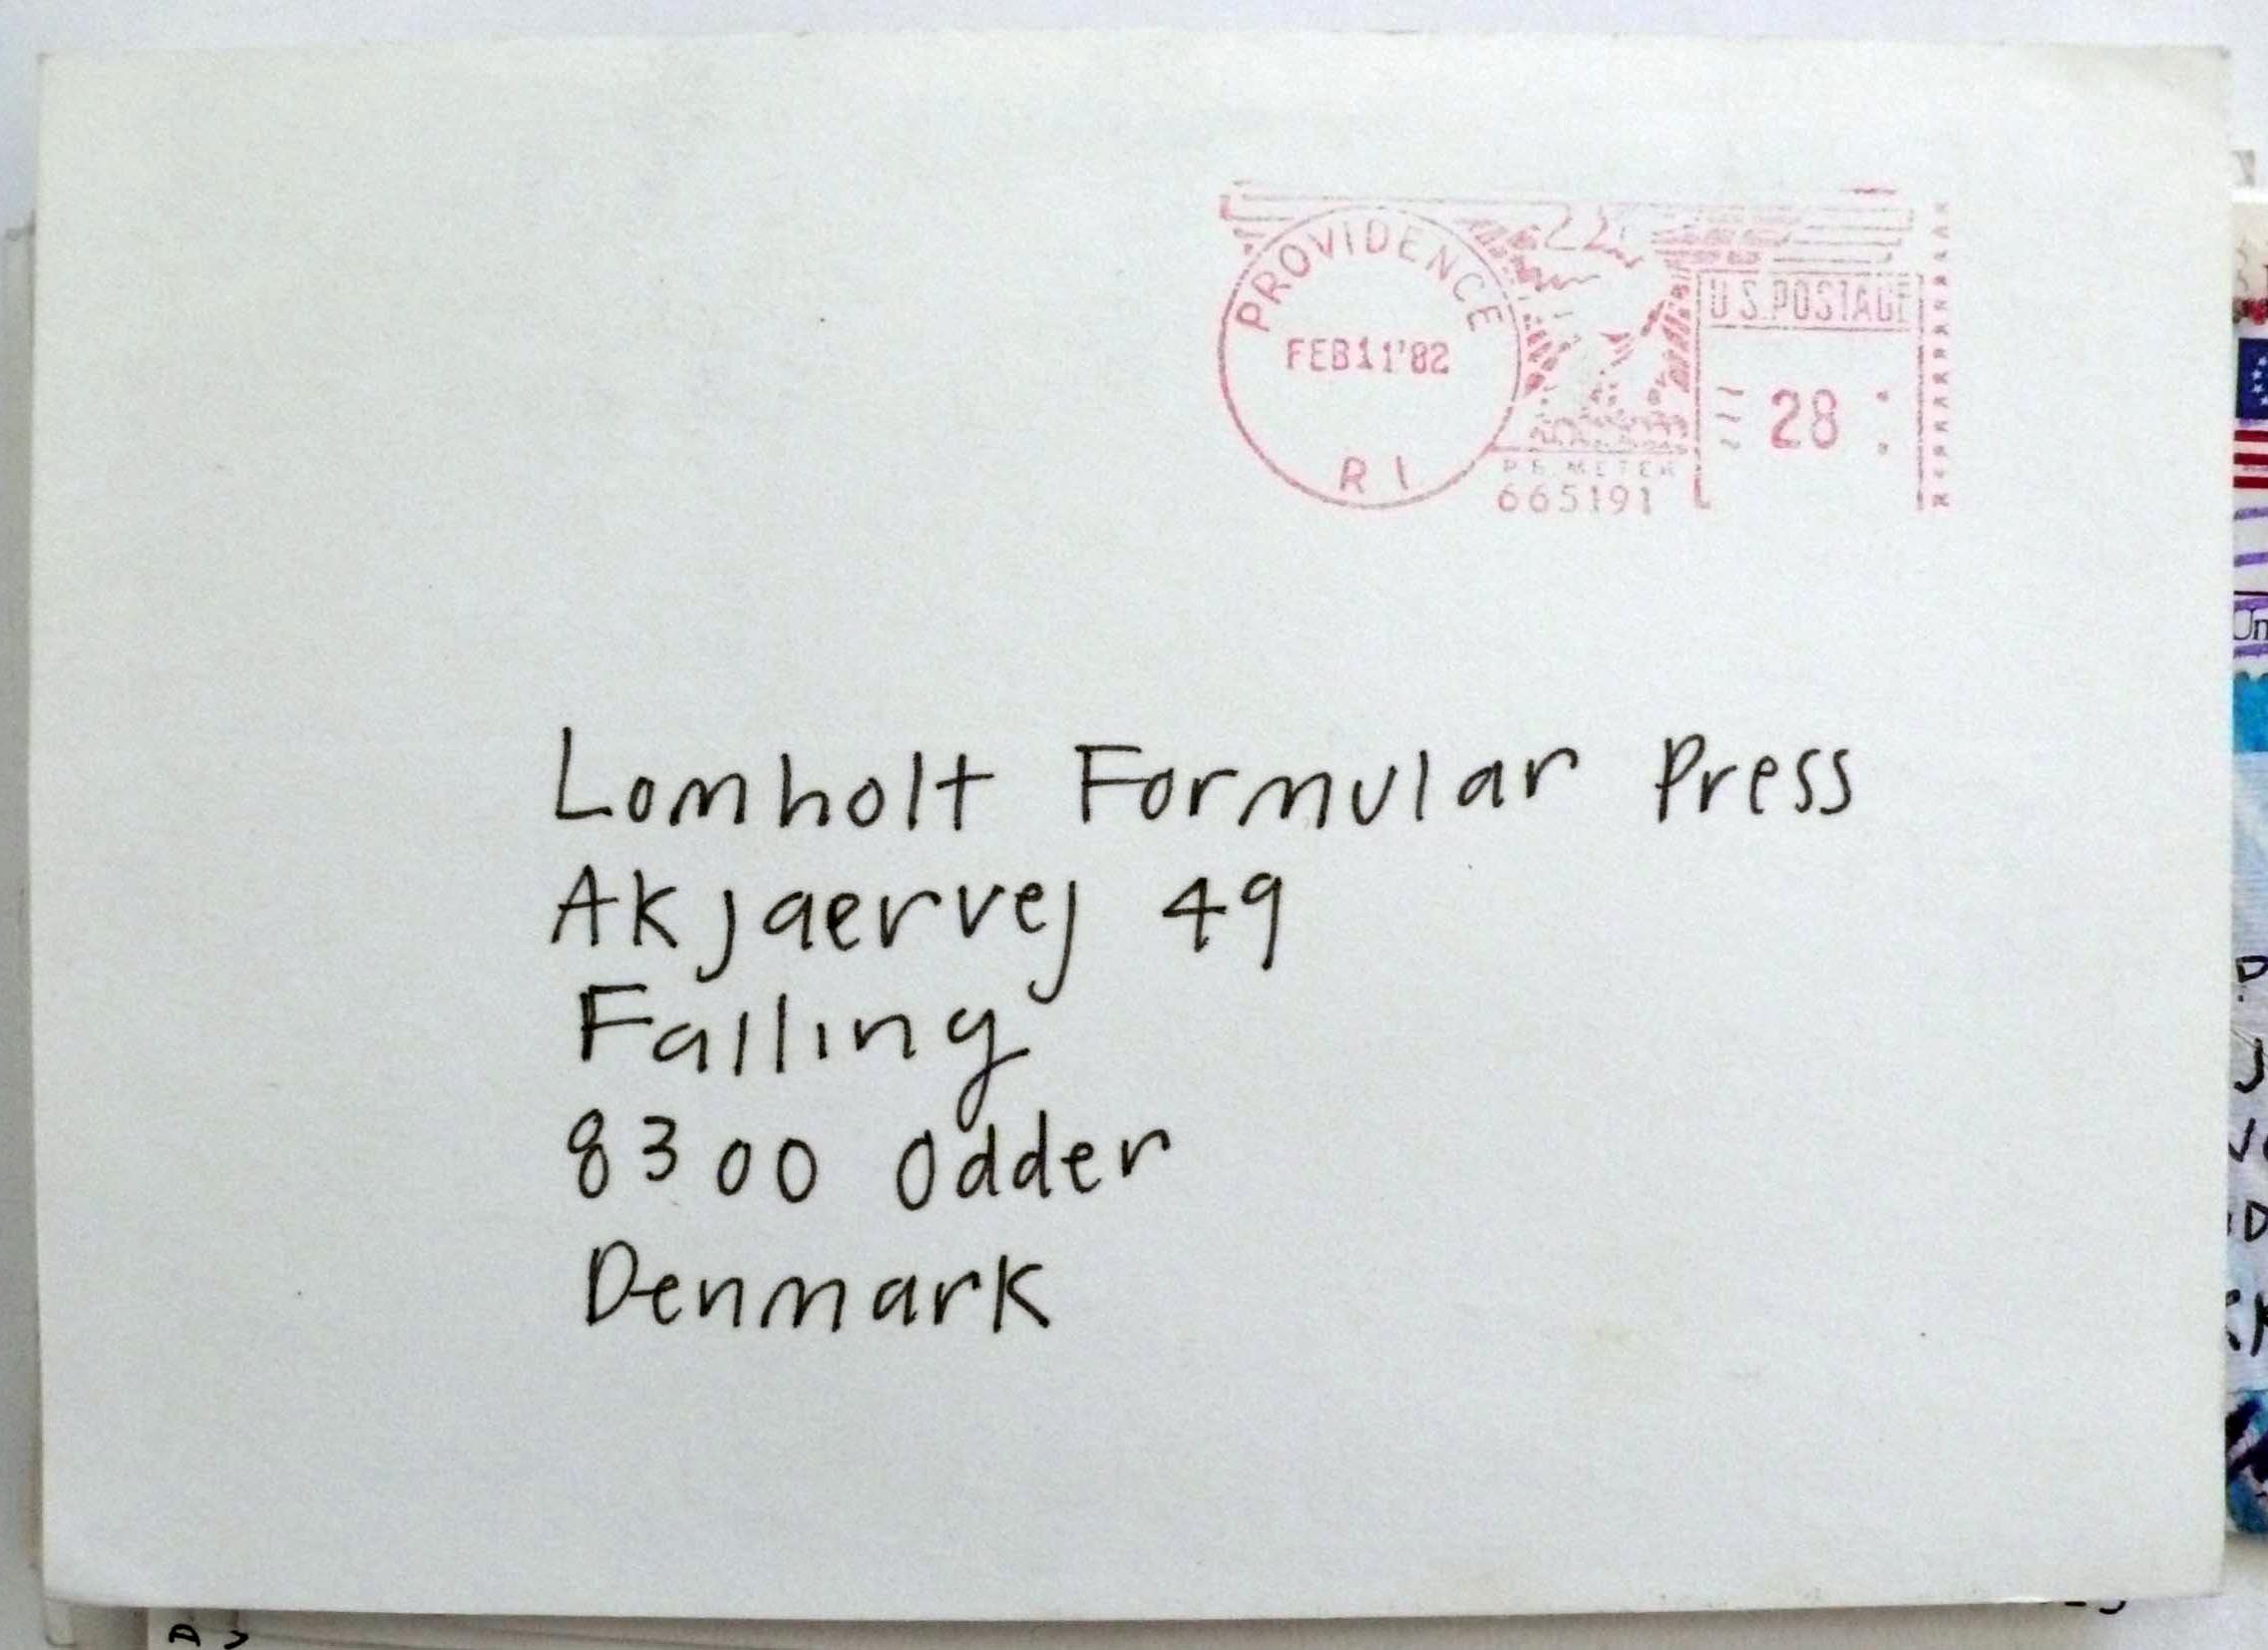 PROVIDENCE
FEB 11 '82
R I
U.S. POSTAGE
28
P.B. METER
665191
Lomholt Formular Press
Akjaervej 49
Falling
8300 Odder
Denmark